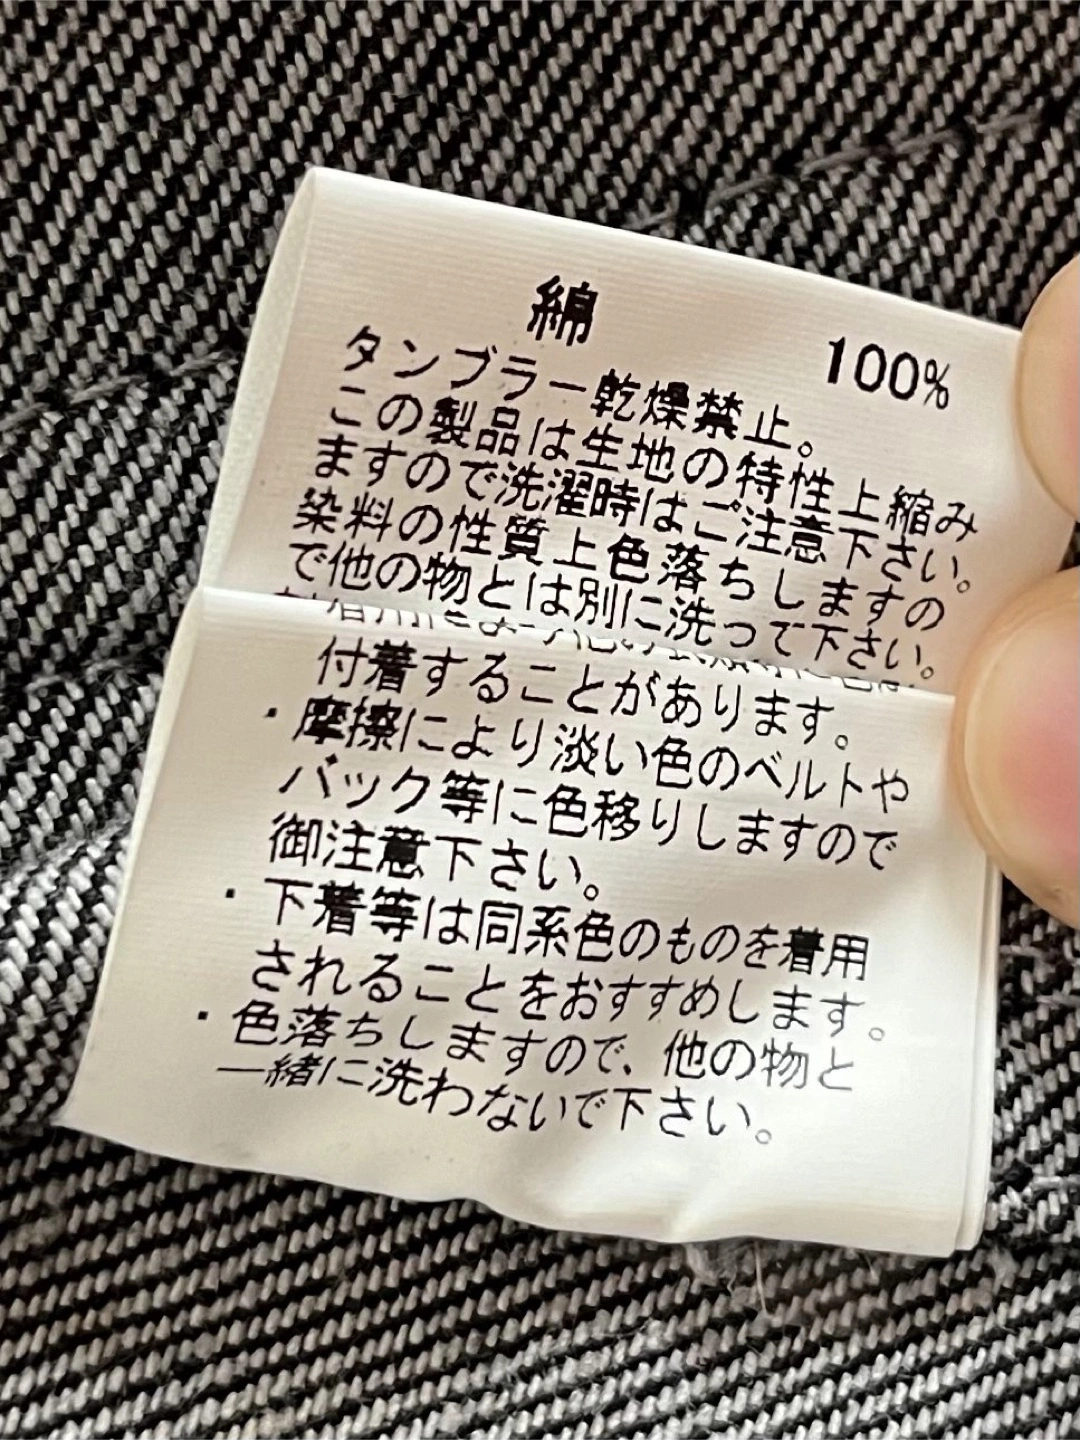 綿 100%
タンブラー乾燥禁止。
この製品は生地の特性上縮み
ますので洗濯時はご注意下さい。
染料の性質上色落ちしますの
で他の物とは別に洗って下さい。
付着することがあります。
・摩擦により淡い色のベルトや
バック等に色移りしますので
御注意下さい。
・下着等は同系色のものを着用
されることをおすすめします。
・色落ちしますので、他の物と
一緒に洗わないで下さい。